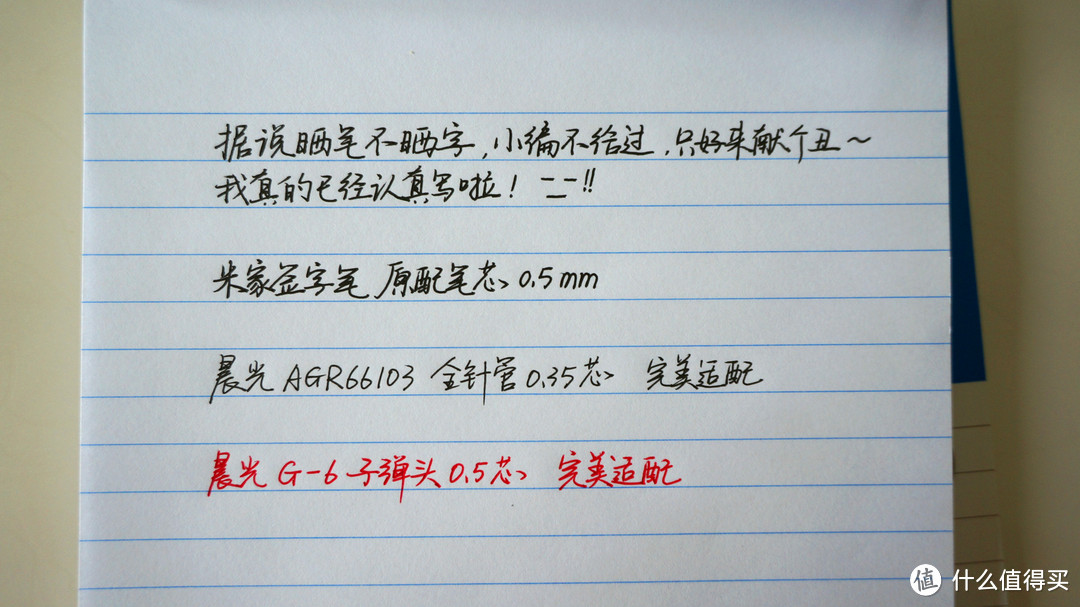 据说晒笔不晒字,小编不给过,只好来献个丑~
我真的已经认真写啦! 二二!!
米家签字笔 原配笔芯 0.5mm
晨光 AGR66103 全针管0.35芯 完美适配
晨光 G-6 子弹头0.5芯 完美适配
值 什么值得买